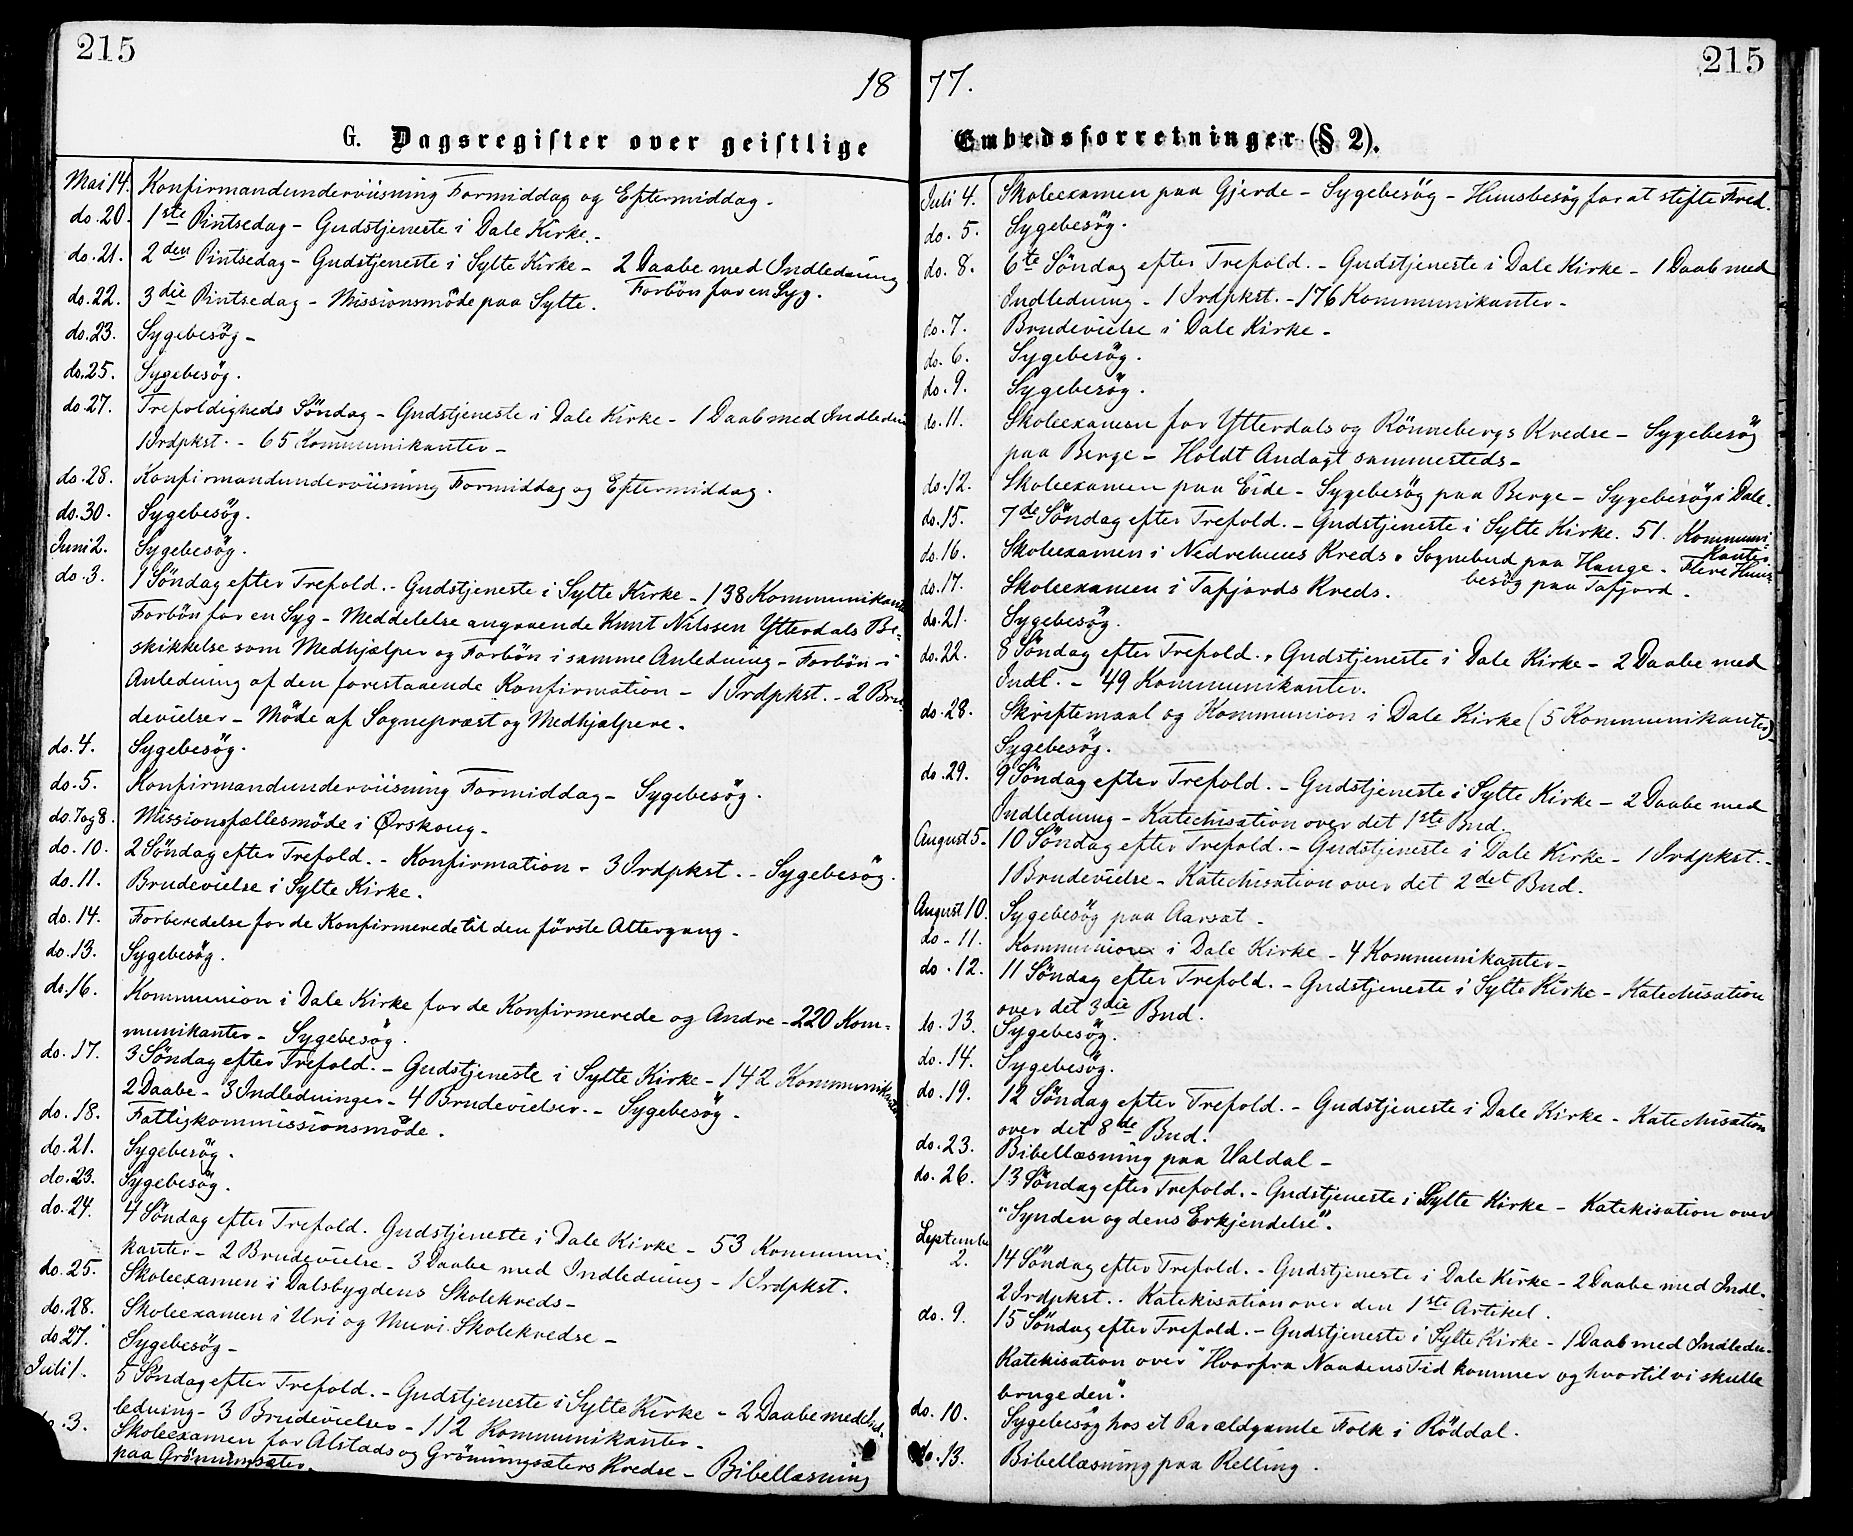 215
18
G. Dagsregister over geistlige
Mai 14. Konfirmandunderviisning Formiddag og Eftermiddag.
do. 20. 1ste Pintsedag - Gudstjeneste i Dale Kirke.
do. 21. 2den Pintsedag - Gudstjeneste i Sylte Kirke - 2 Daabe med Indledning
Forbön for en Syg.
do. 22. 3die Pintsedag - Missionsmöde paa Sylte.
do. 23. Sygebesög -
do. 25. Sygebesög.
do. 27. Trefoldigheds Söndag - Gudstjeneste i Dale Kirke - 1 Daab med Indledn
1 Irdpkst. - 65 Kommunikanter -
do. 28. Konfirmandunderviisning Formiddag og Eftermiddag.
do. 30. Sygebesög.
Juni 2. Sygebesög.
do. 3. 1 Söndag efter Trefold. - Gudstjeneste i Sylte Kirke - 138 Kommunikant
Forbön for en Syg - Meddelelse angaaende Knut Nilssen Ytterdals Be-
skikkelse som Medhjælper og Forbön i samme Anledning - Forbön i
Anledning af den forestaaende Konfirmation - 1 Irdpkst. - 2 Bru-
devielser - Möde af Sognepræst og Medhjælpere.
do. 4. Sygebesög.
do. 5. Konfirmandunderviisning Formiddag - Sygebesög.
do. 7 og 8. Missionsfællesmöde i Ørskoug -
do. 10. 2 Söndag efter Trefold. - Konfirmation - 3 Irdpkst. - Sygebesög.
do. 11. Brudevielse i Sylte Kirke.
do. 14. Forberedelse for de Konfirmerede til den förste Altergang -
do. 13. Sygebesög.
do. 16. Kommunion i Dale Kirke for de Konfirmerede og Andre - 220 Kom-
munikanter - Sygebesög.
do. 17. 3 Söndag efter Trefold. - Gudstjeneste i Sylte Kirke - 142 Kommunikanter
2 Daabe - 3 Indledninger - 4 Brudevielser. - Sygebesög -
do. 18. Fattigkommissionsmöde.
do. 21. Sygebesög.
do. 23. Sygebesög.
do. 24. 4 Söndag efter Trefold. Gudstjeneste i Dale Kirke - 53 Kommuni-
kanter - 2 Brudevielse - 3 Daabe med Indledning - 1 Irdpkst.
do. 25. Skoleexamen i Dalsbygdens Skolekreds -
do. 28. Skoleexamen i Uri og Muri Skolekredse -
do 27. Sygebesög -
Juli 1. 5 Söndag efter Trefold. - Gudstjeneste i Sylte Kirke - 2 Daabe med Ind-
ledning - 3 Brudevielser - 112 Kommunikanter -
do. 3. Skoleexamen for Alstads og Gröningsæters Kredse - Bibellæsning
paa Gröningsæter.
215
77.
Embedsforretninger (§ 2).
Juli 4. Skoleexamen paa Gjerde - Sygebesög - Huusbesög for at stifte Fred.
do. 5. Sygebesög.
do. 8. 6te Söndag efter Trefold. - Gudstjeneste i Dale Kirke - 1 Daab med
Indledning - 1 Irdpkst. - 176 Kommunikanter -
do. 7. Brudevielse i Dale Kirke -
do. 6. Sygebesög.
do. 9. Sygebesög.
do. 11. Skoleexamen for Ytterdals og Rönnebergs Kredse - Sygebesög
paa Berge - Holdt Andagt sammesteds -
do. 12. Skoleexamen paa Eide - Sygebesög paa Berge - Sygebesög i Dale.
do. 15. 7de Söndag efter Trefold. - Gudstjeneste i Sylte Kirke. 51. Kommuni-
kanter
do. 16. Skoleexamen i Nedrehuus Kreds. Sognebud paa Hauge - Flere Huus-
besög paa Tafjord -
do. 17. Skoleexamen i Tafjords Kreds.
do. 21. Sygebesög.
do. 22. 8 Söndag efter Trefold. Gudstjeneste i Dale Kirke - 2 Daabe med
Indl. - 49 Kommunikanter.
do. 28. Skriftemaal og Kommunion i Dale Kirke (5 Kommunikanter)
Sygebesög.
do. 29. 9 Söndag efter Trefold. - Gudstjeneste i Sylte Kirke - 2 Daabe med
Indledning - Katechisation over det 1ste Bud.
August 5. 10 Söndag efter Trefold. - Gudstjeneste i Dale Kirke - 1 Irdpkst. -
1 Brudevielse - Katechisation over det 2det Bud.
August 10. Sygebesög paa Aarsat -
do - 11. Kommunion i Dale Kirke - 4 Kommunikanter -
do. 12. 11 Söndag efter Trefold. - Gudstjeneste i Sylte Kirke - Katechisation
over det 3die Bud.
do. 13. Sygebesög.
do. 14. Sygebesög.
do. 19. 12 Söndag efter Trefold. - Gudstjeneste i Dale Kirke - Katechisation
over det 8de Bud.
do. 23. Bibellæsning paa Valdal -
do. 26. 13 Söndag efter Trefold. - Gudstjeneste i Sylte Kirke - Katekisation over
"Synden og dens Erkjendelse".
September
2. 14 Söndag efter Trefold. - Gudstjeneste i Dale Kirke - 2 Daabe med Indl.
2 Irdpkst. . Katekisation over den 1ste Artikel.
do. 9. 15 Söndag efter Trefold. - Gudstjeneste i Sylte Kirke - 1 Daab med Indledn.
Katekisation over "Hvorfra Naadens Tid kommer og hvortil vi skulle
bruge den".
do. 10. Sygebesög hos et Par ældgamle Folk i Röddal.
do. 13. Bibellæsning paa Relling.